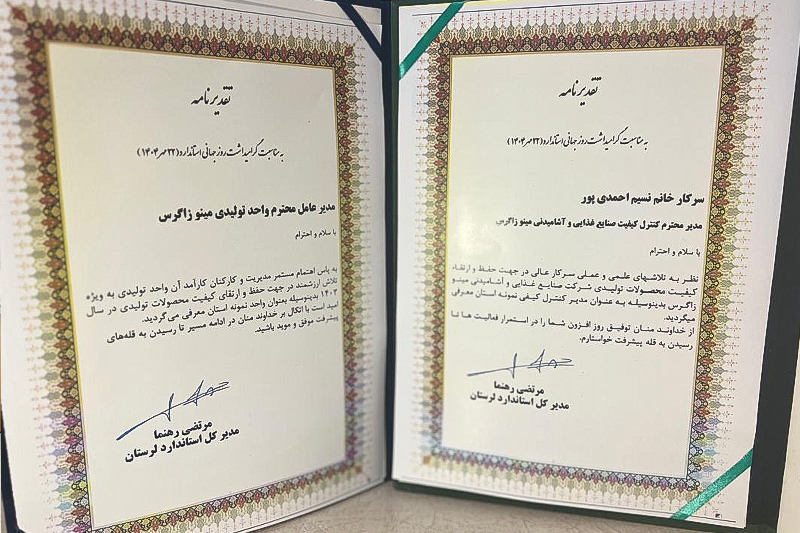 تقدیرنامه
به مناسبت گرامیداشت روز جهانی استاندارد (۲۲ مهر ۱۴۰۴)
سرکار خانم نسیم احمدی پور
مدیر محترم کنترل کیفیت صنایع غذایی و آشامیدنی مینو زاگرس
با سلام و احترام
نظر به تلاشهای علمی و عملی سرکار عالی در جهت حفظ و ارتقاء
کیفیت محصولات تولیدی شرکت صنایع غذایی و آشامیدنی مینو
زاگرس بدینوسیله به عنوان مدیر کنترل کیفی نمونه استان معرفی
میگردید.
از خداوند منان توفیق روز افزون شما را در استمرار فعالیت ها تا
رسیدن به قله پیشرفت خواستارم.
مرتضی رهنما
مدیر کل استاندارد لرستان
تقدیرنامه
به مناسبت گرامیداشت روز جهانی استاندارد (۲۲ مهر ۱۴۰۴)
مدیر عامل محترم واحد تولیدی مینو زاگرس
با سلام و احترام
به پاس اهتمام مستمر مدیریت و کارکنان کارآمد آن واحد تولیدی به ویژه
تلاش ارزشمند در جهت حفظ و ارتقای کیفیت محصولات تولیدی در سال
۱۴۰۳ بدینوسیله بعنوان واحد نمونه استان معرفی می‌گردید.
امید است با اتکال بر خداوند منان در ادامه مسیر تا رسیدن به قله‌های
پیشرفت موفق و موید باشید.
مرتضی رهنما
مدیر کل استاندارد لرستان